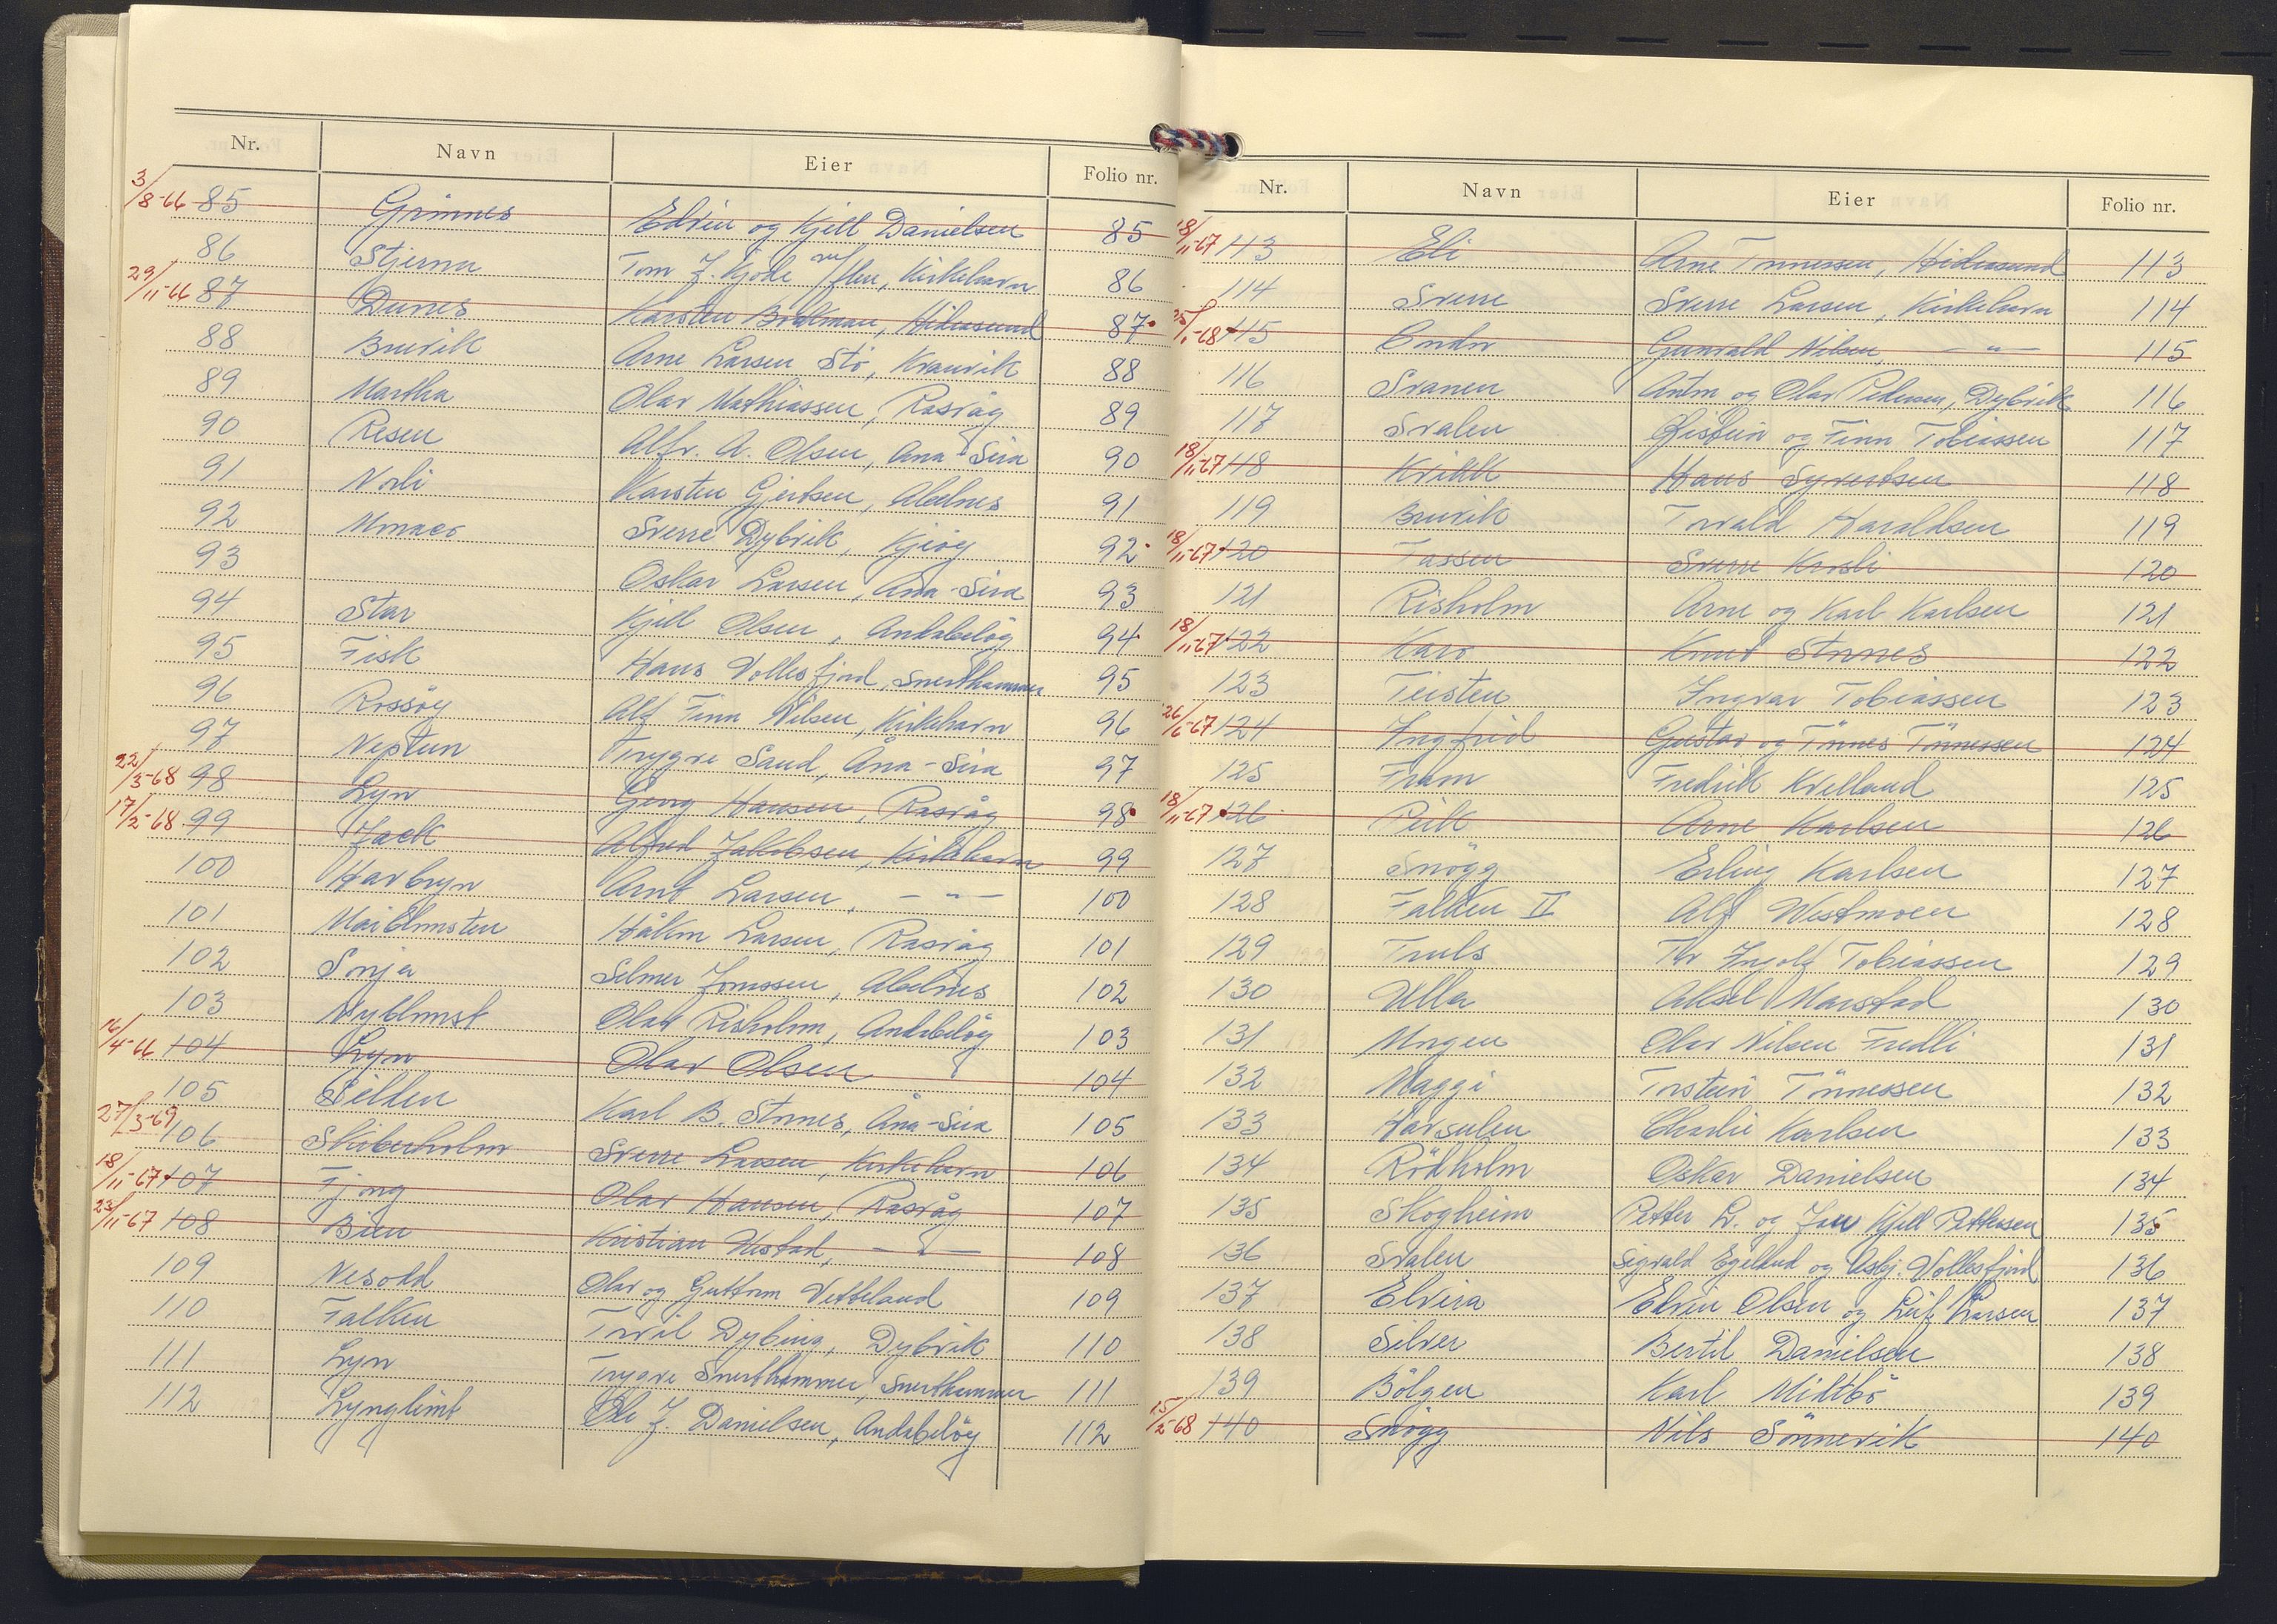 Nr. Navn Eier Folio nr.
3/8-66 85 Grimnes Edvin og Kjell Danielsen 85
86 Stjerna Tom J. Kjode m/flere, Kirkehavn 86
29/11-66 87 Dunes Karsten Brekman, Hidrasund 87
88 Buvik Arne Larsen Stö, Kranvik 88
89 Martha Olav Mathiassen, Rasvåg 89
90 Resen Alfr. A. Olsen, Ana-Sira 90
91 Norli Karsten Gjertsen, Abelnes 91
92 Monaco Sverre Dybvik, Kjiöy 92
93 Oskar Larsen, Ana-Sira 93
94 Star Kjell Olsen, Andabelöy 94
95 Fisk Hans Vollesfjord, Snerthammer 95
96 Rossöy Alf Finn Nilsen, Kirkehavn 96
97 Neptun Trygve Saud, Åna-Sira 97
22/3-68 98 Lyn Georg Hansen, Rasvåg 98
17/2-68 99 Jack Alfred Jakobsen, Kirkehavn 99
100 Havbryn Arnt Larsen, - " - 100
101 Maiblomsten Håkon Larsen, Rasvåg 101
102 Sonja Selmer Jonassen, Abelnes 102
103 Nyblomst Olav Risholm, Andabelöy 103
16/4-66 104 Lyn Olav Olsen 104
105 Sillen Karl B. Stornes, Åna-Sira 105
27/3-69 106 Skiberholm Sverre Larsen, Kirkehavn 106
18/11-67 107 Fjong Olav Hansen, Rasvåg 107
23/11-67 108 Bien Kristian Ustad, - " - 108
109 Nesodd Olav og Guttorm Vetteland 109
110 Falken Torvil Dybing, Dybvik 110
111 Lyn Trygve Snerthammer, Snerthammer 111
112 Lynglimt Ole J. Danielsen, Andabelöy 112
Nr. Navn Eier Folio nr.
18/11-67 113 Eli Arne Tönnessen, Hidrasund 113
114 Sverre Sverre Larsen, Kirkehavn 114
25/1-68 115 Condor Gunvald Nilsen, - " - 115
116 Svanen Anton og Olav Pedersen, Dybvik 116
117 Svalen Øistein og Finn Tobiassen 117
18/11-67 118 Kvikk Hans Syvertsen 118
119 Buvik Torvald Haraldsen 119
18/11-67 120 Tassen Sverre Korsli 120
121 Risholm Arne og Karl Karlsen 121
18/11-67 122 Karo Knut Stornes 122
123 Teisten Ingvar Tobiassen 123
26/6-67 124 Ingfrid Gustav og Tönnes Tönnessen 124
125 Fram Fredrik Kvelland 125
18/11-67 126 Peik Arne Karlsen 126
127 Snögg Erling Karlsen 127
128 Falken II Alf Westmoen 128
129 Truls Thor Ingolf Tobiassen 129
130 Ulla Aksel Marstad 130
131 Morgen Olav Nilsen Fredli 131
132 Maggi Torstein Tönnessen 132
133 Havsulen Charlie Karlsen 133
134 Rödholm Oskar Danielsen 134
135 Skogheim Petter L. og Jan Kjell Pettersen 135
136 Svalen Sigvald Egeland og Asbj. Vollesfjord 136
137 Elvira Edvin Olsen og Leif Larsen 137
138 Silver Bertil Danielsen 138
139 Bölgen Karl Midtbö 139
15/2-68 140 Snögg Nils Sönnevik 140